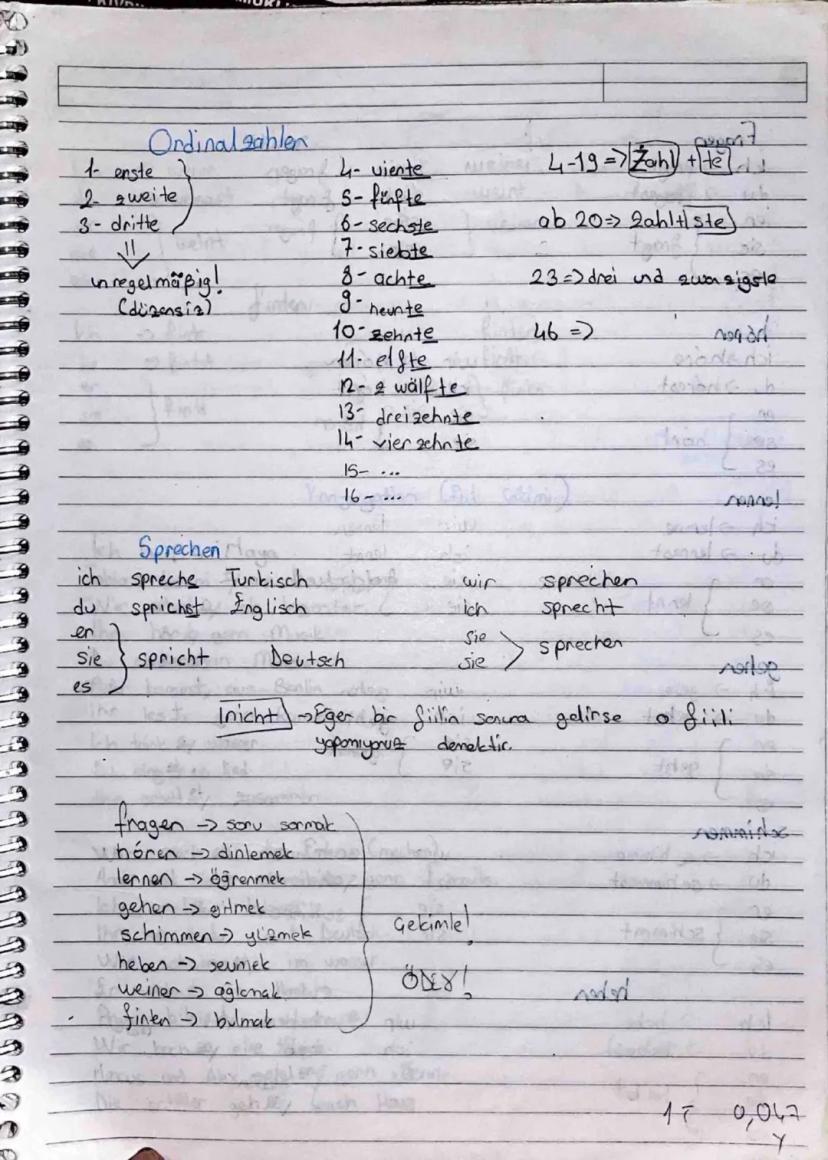 Ordinalzahlen
1- erste
2- zweite
3- dritte
unregelmäßig!
(düzensiz)
4- viente
5- fünfte
6- sechste
7- siebte
8- achte
9- neunte
10- zehnte
11- elfte
12- zwölfte
13- dreizehnte
14- vierzehnte
15- ...
16- ...
4-19 => Zahl + te
ab 20 => Zahl + ste
23 => drei und zwanzigste
46 =>
Sprechen
ich spreche Turkisch wir sprechen
du sprichst Englisch ich sprecht
er
sie spricht Deutsch
es
sie
sie sprechen
nicht → Eğer bir fiilin sonuna gelirse o fiili
yapamıyoruz demektir.
fragen → soru sormak
hören → dinlemek
lernen → öğrenmek
gehen → gitmek
schimmen → yüzmek
heben → sevmek
weiner → ağlamak
finten → bulmak
Çekimle!
ÖDEV!